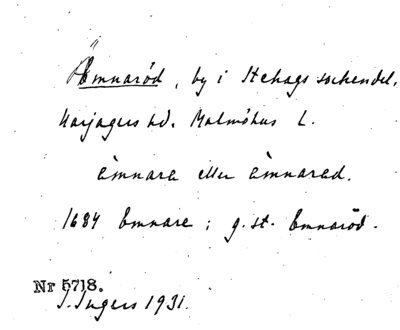 Ämnaröd, by i Stehags sockendel,
Harjagers hd. Malmöhus L.
ämnara eller ämnarad.
1684 Emnare; g. st. Emnaröd.
Nr 5718.
I. Ingers 1931.